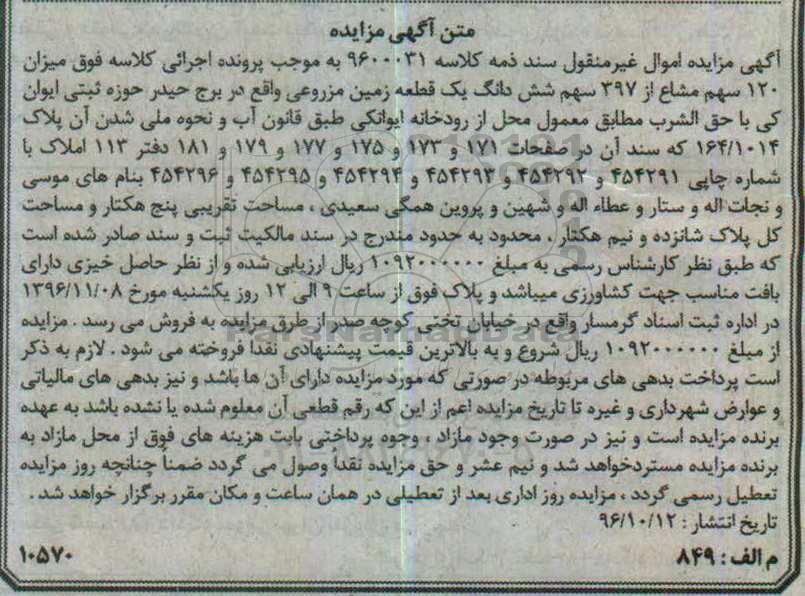 متن آگهی مزایده
آگهی مزایده اموال غیرمنقول سند ذمه کلاسه ۹۶۰۰۰۳۱ به موجب پرونده اجرائی کلاسه فوق میزان
۱۲۰ سهم مشاع از ۳۹۷ سهم شش دانگ یک قطعه زمین مزروعی واقع در برج حیدر حوزه ثبتی ایوان
کی با حق الشرب مطابق معمول محل از رودخانه ایوانکی طبق قانون آب و نحوه ملی شدن آن پلاک
۱۶۴/۱۰۱۴ که سند آن در صفحات ۱۷۱ و ۱۷۳ و ۱۷۵ و ۱۷۷ و ۱۷۹ و ۱۸۱ دفتر ۱۱۳ املاک با
شماره چاپی ۴۵۴۲۹۱ و ۴۵۴۲۹۲ و ۴۵۴۲۹۳ و ۴۵۴۲۹۴ و ۴۵۴۲۹۵ و ۴۵۴۲۹۶ بنام های موسی
و نجات اله و ستار و عطاء اله و شهین و پروین همگی سعیدی ، مساحت تقریبی پنج هکتار و مساحت
کل پلاک شانزده و نیم هکتار ، محدود به حدود مندرج در سند مالکیت ثبت و سند صادر شده است
که طبق نظر کارشناس رسمی به مبلغ ۱۰۹۲۰۰۰۰۰۰ ریال ارزیابی شده و از نظر حاصل خیزی دارای
بافت مناسب جهت کشاورزی میباشد و پلاک فوق از ساعت ۹ الی ۱۲ روز یکشنبه مورخ ۱۳۹۶/۱۱/۰۸
در اداره ثبت اسناد گرمسار واقع در خیابان تختی کوچه صدر از طرق مزایده به فروش می رسد . مزایده
از مبلغ ۱۰۹۲۰۰۰۰۰۰ ریال شروع و به بالاترین قیمت پیشنهادی نقدا فروخته می شود . لازم به ذکر
است پرداخت بدهی های مربوطه در صورتی که مورد مزایده دارای آن ها باشد و نیز بدهی های مالیاتی
و عوارض شهرداری و غیره تا تاریخ مزایده اعم از این که رقم قطعی آن معلوم شده یا نشده باشد به عهده
برنده مزایده است و نیز در صورت وجود مازاد ، وجوه پرداختی بابت هزینه های فوق از محل مازاد به
برنده مزایده مستردخواهد شد و نیم عشر و حق مزایده نقداً وصول می گردد ضمناً چنانچه روز مزایده
تعطیل رسمی گردد ، مزایده روز اداری بعد از تعطیلی در همان ساعت و مکان مقرر برگزار خواهد شد .
تاریخ انتشار : ۹۶/۱۰/۱۲
م الف : ۸۴۹
۱۰۵۷۰
ParsNamadData